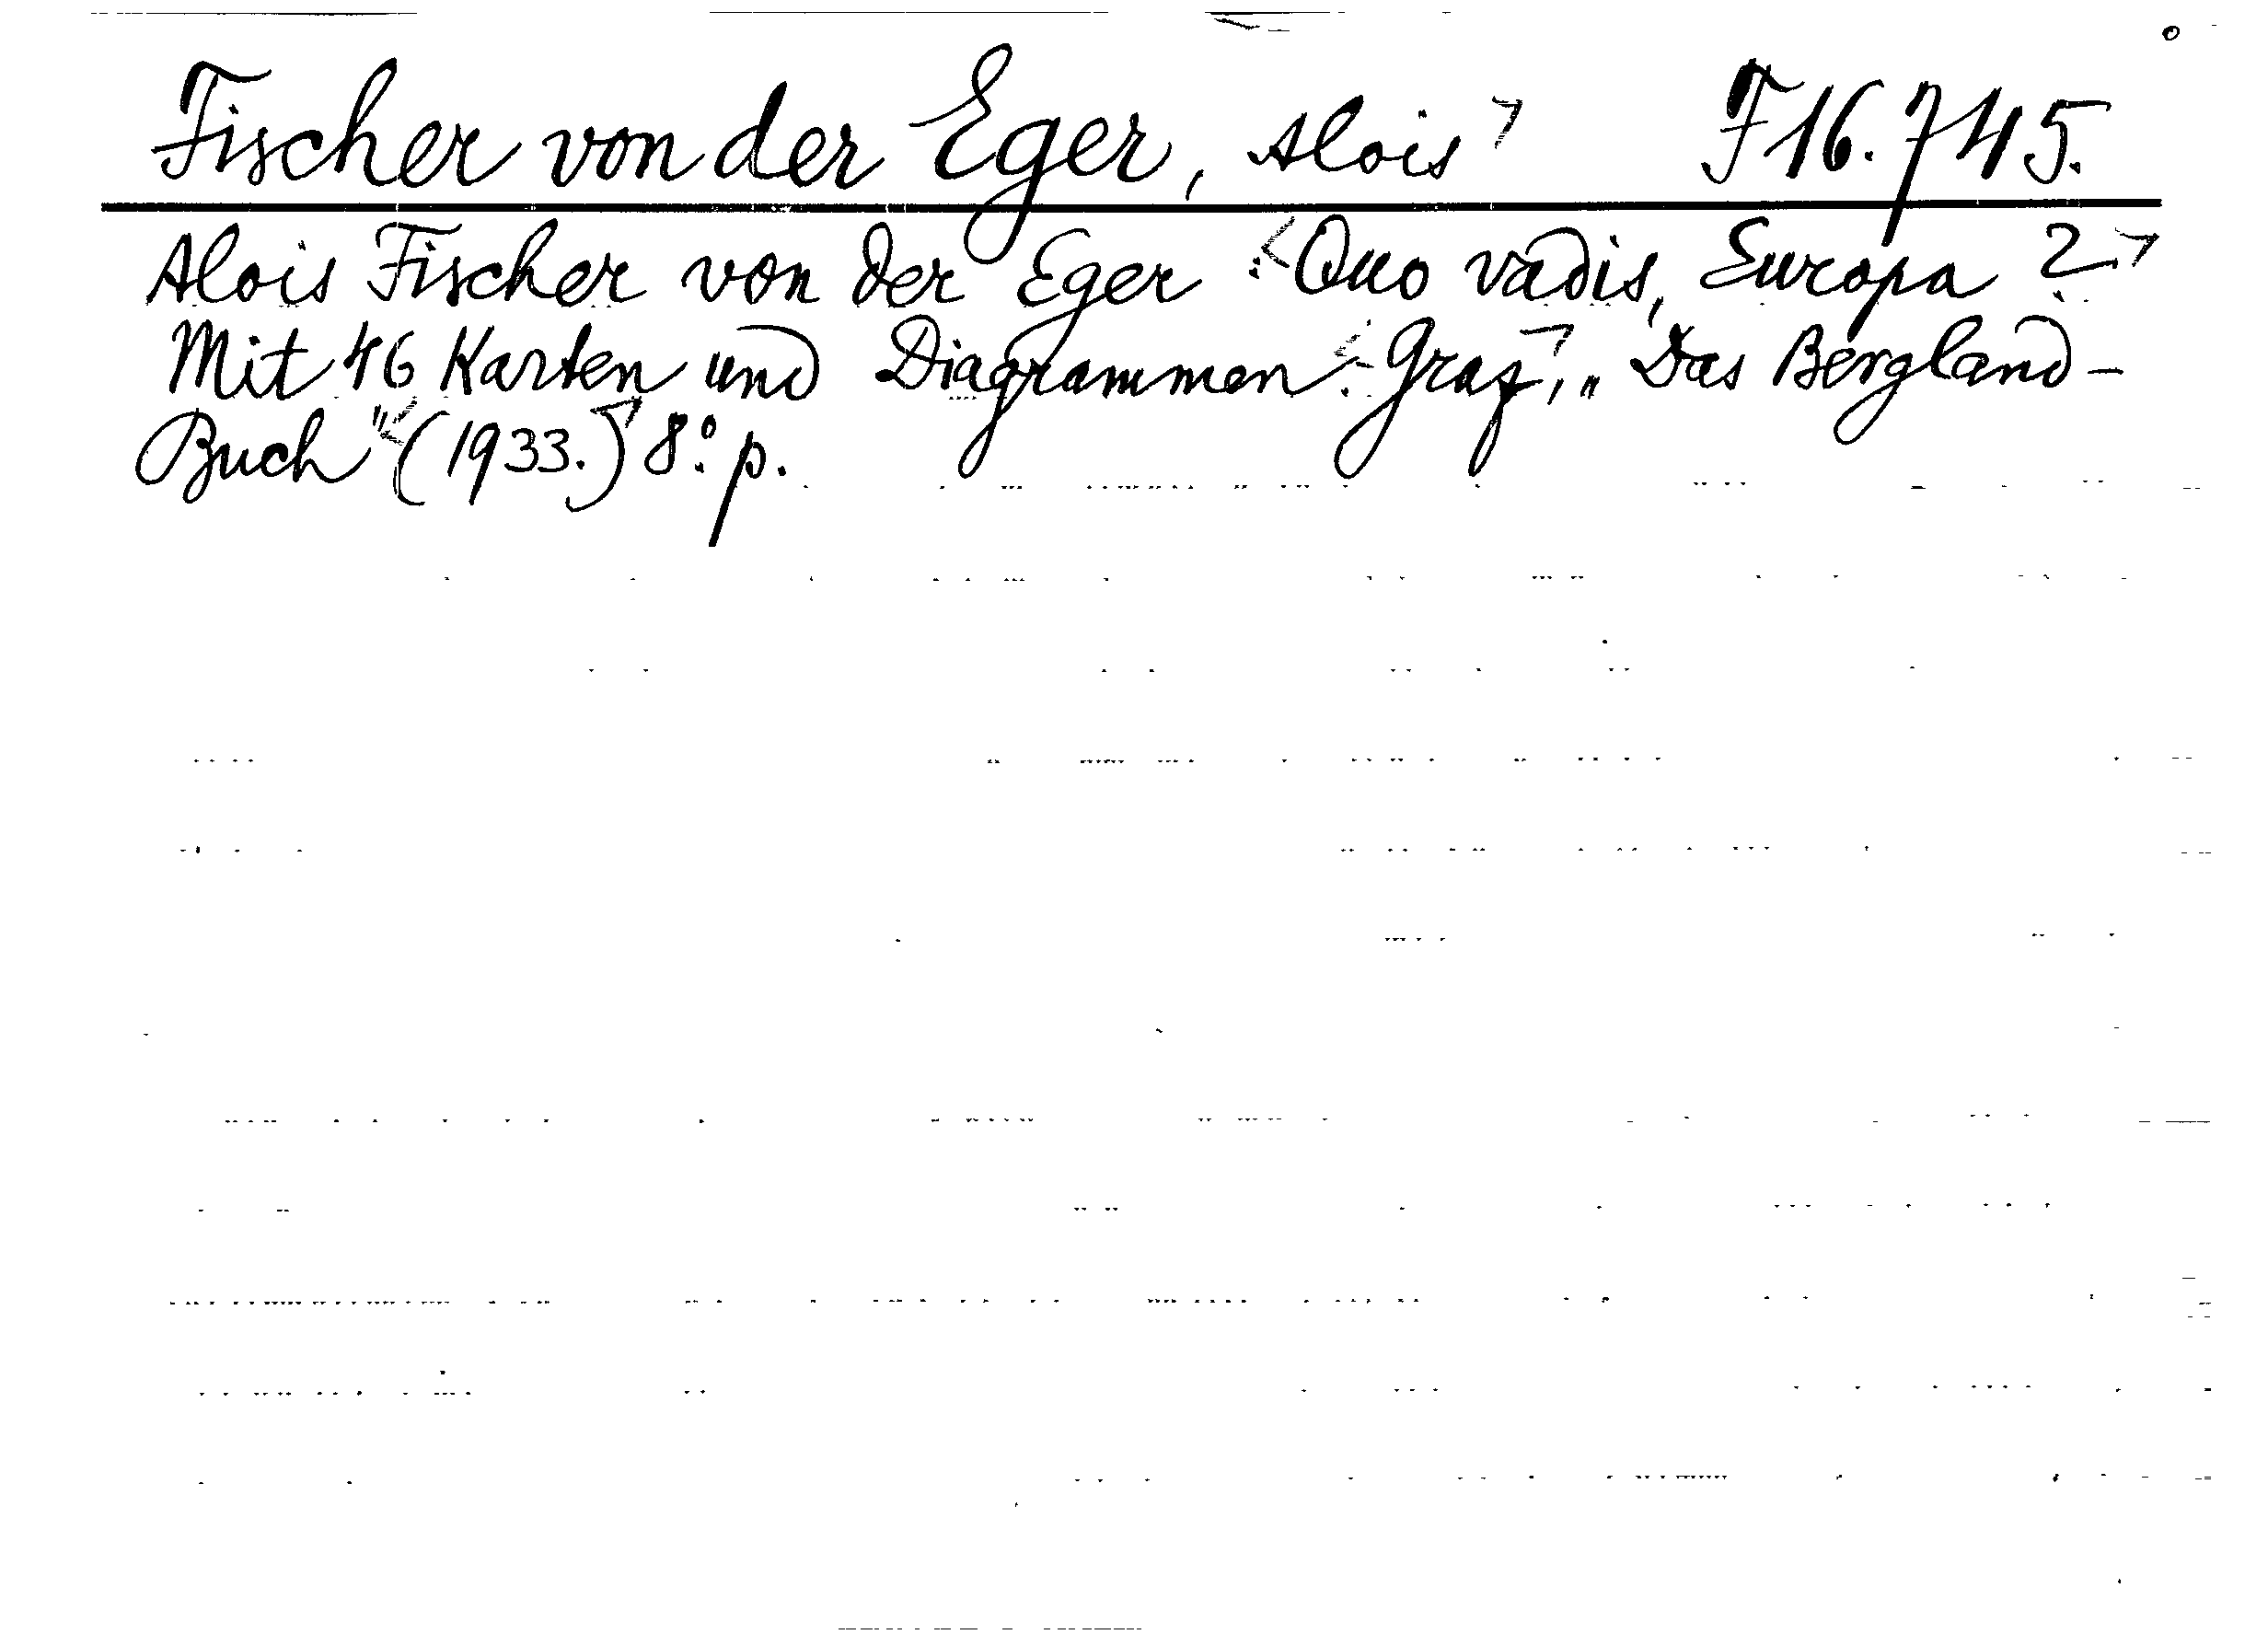 Fischer von der Eger, Alois F16.745.
Alois Fischer von der Eger: Quo vadis, Europa?
Mit 46 Karten und Diagrammen. Graz, „Das Bergland-
Buch" (1933.) 8° p.